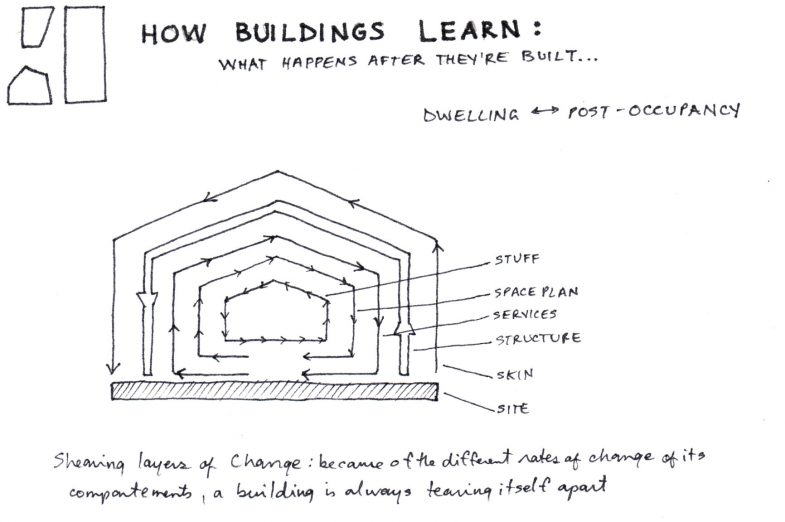 HOW BUILDINGS LEARN:
WHAT HAPPENS AFTER THEY'RE BUILT...
DWELLING ↔ POST-OCCUPANCY
STUFF
SPACE PLAN
SERVICES
STRUCTURE
SKIN
SITE
Shearing layers of Change: because of the different rates of change of its
compontements, a building is always tearing itself apart